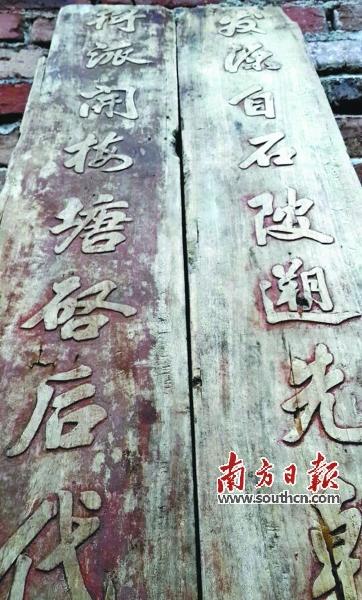 發源自石陂遡先
衍派開梅塘啓后代
南方日報
www.southcn.com